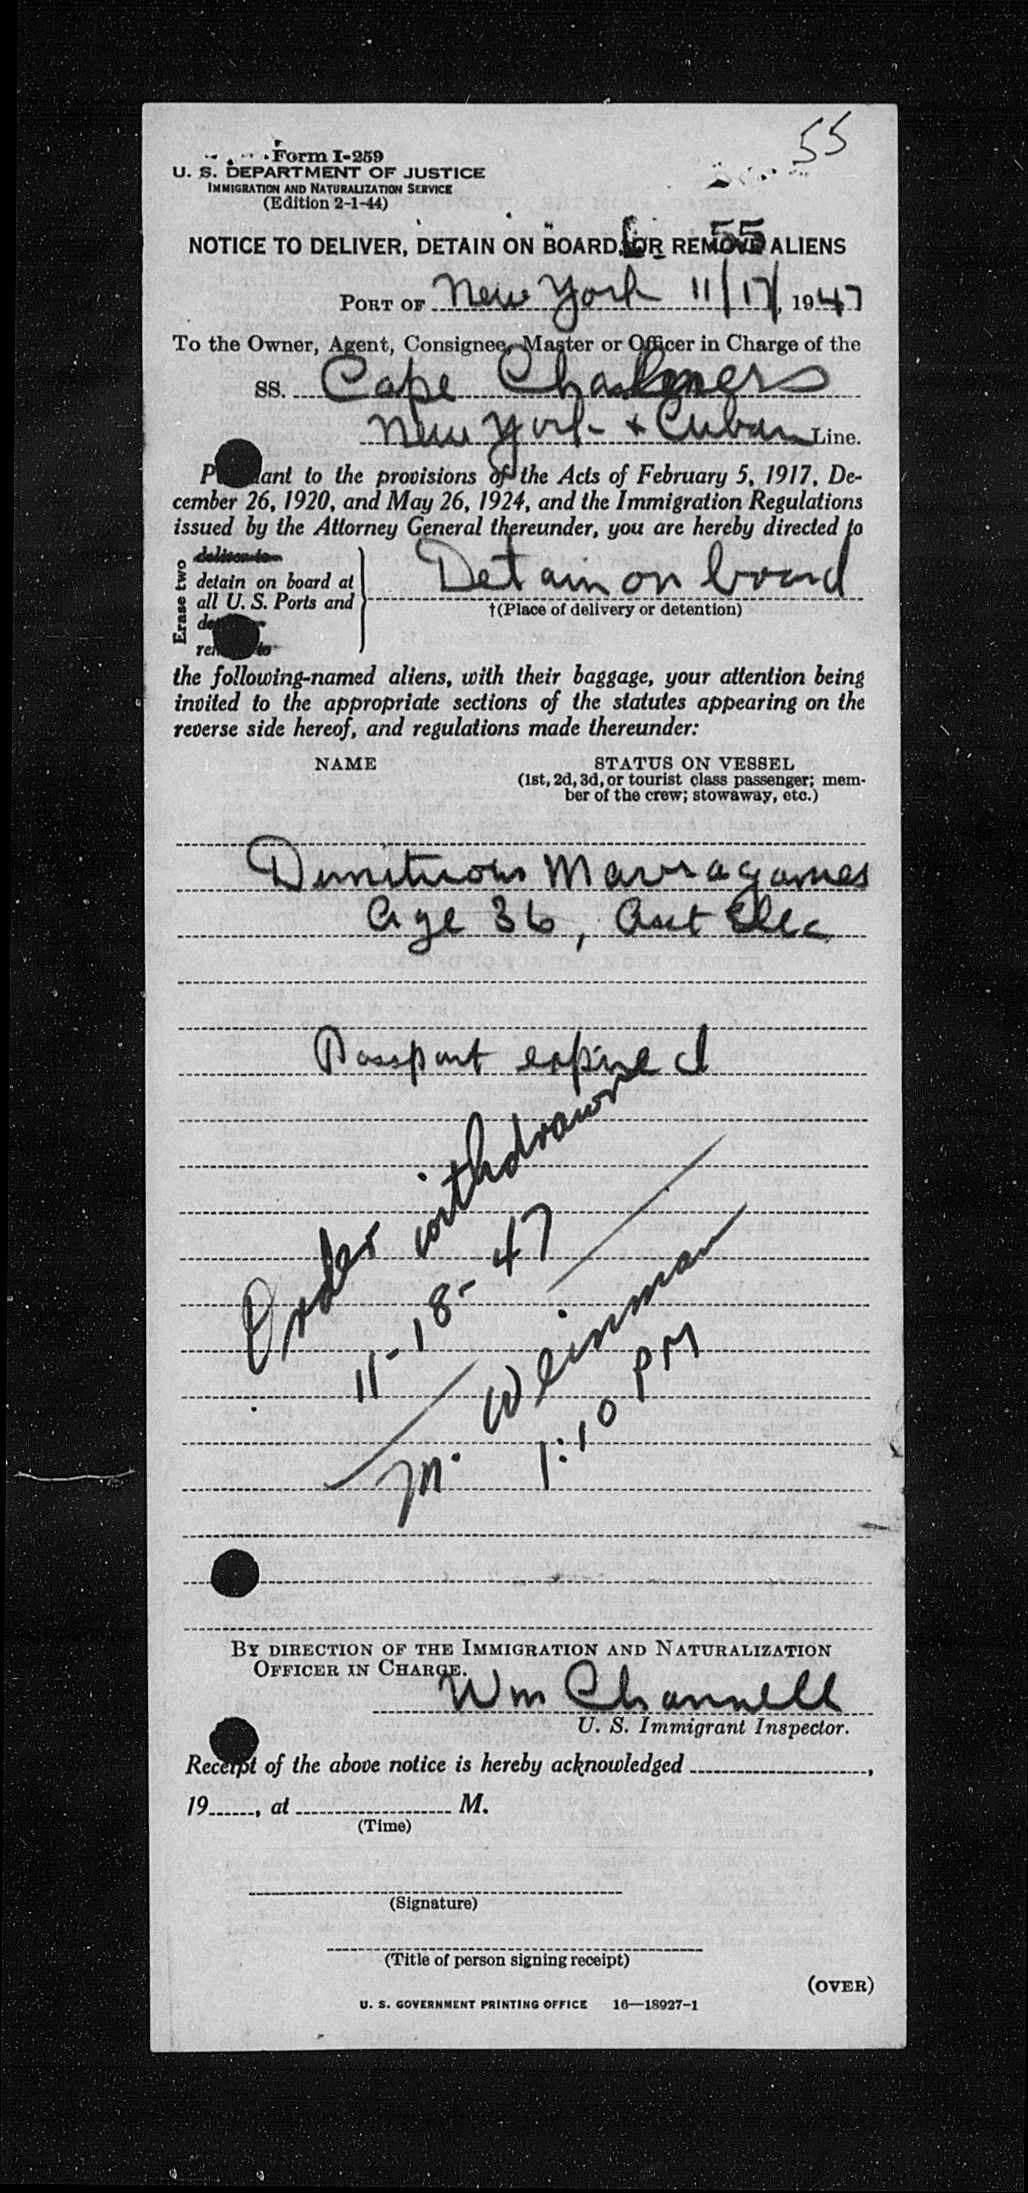 55
Form I-259
U. S. DEPARTMENT OF JUSTICE
IMMIGRATION AND NATURALIZATION SERVICE
(Edition 2-1-44)
55
NOTICE TO DELIVER, DETAIN ON BOARD, OR REMOVE ALIENS
PORT OF New York 11/17, 1947
To the Owner, Agent, Consignee, Master or Officer in Charge of the
SS. Cape Chalmers
New York & Cuban Line.
P ant to the provisions of the Acts of February 5, 1917, De-
cember 26, 1920, and May 26, 1924, and the Immigration Regulations
issued by the Attorney General thereunder, you are hereby directed to
Erase two
deliver to
detain on board at
all U. S. Ports and
Detain on board
†(Place of delivery or detention)
the following-named aliens, with their baggage, your attention being
invited to the appropriate sections of the statutes appearing on the
reverse side hereof, and regulations made thereunder:
NAME STATUS ON VESSEL
(1st, 2d, 3d, or tourist class passenger; mem-
ber of the crew; stowaway, etc.)
Age 36, Elec
Passport expired
Order withdrawn
11-18-47
M. Weinman
1:10 PM
BY DIRECTION OF THE IMMIGRATION AND NATURALIZATION
OFFICER IN CHARGE.
Wm Channell
U. S. Immigrant Inspector.
Receipt of the above notice is hereby acknowledged ,
19 , at M.
(Time)
(Signature)
(Title of person signing receipt)
(OVER)
U. S. GOVERNMENT PRINTING OFFICE 16—18927-1